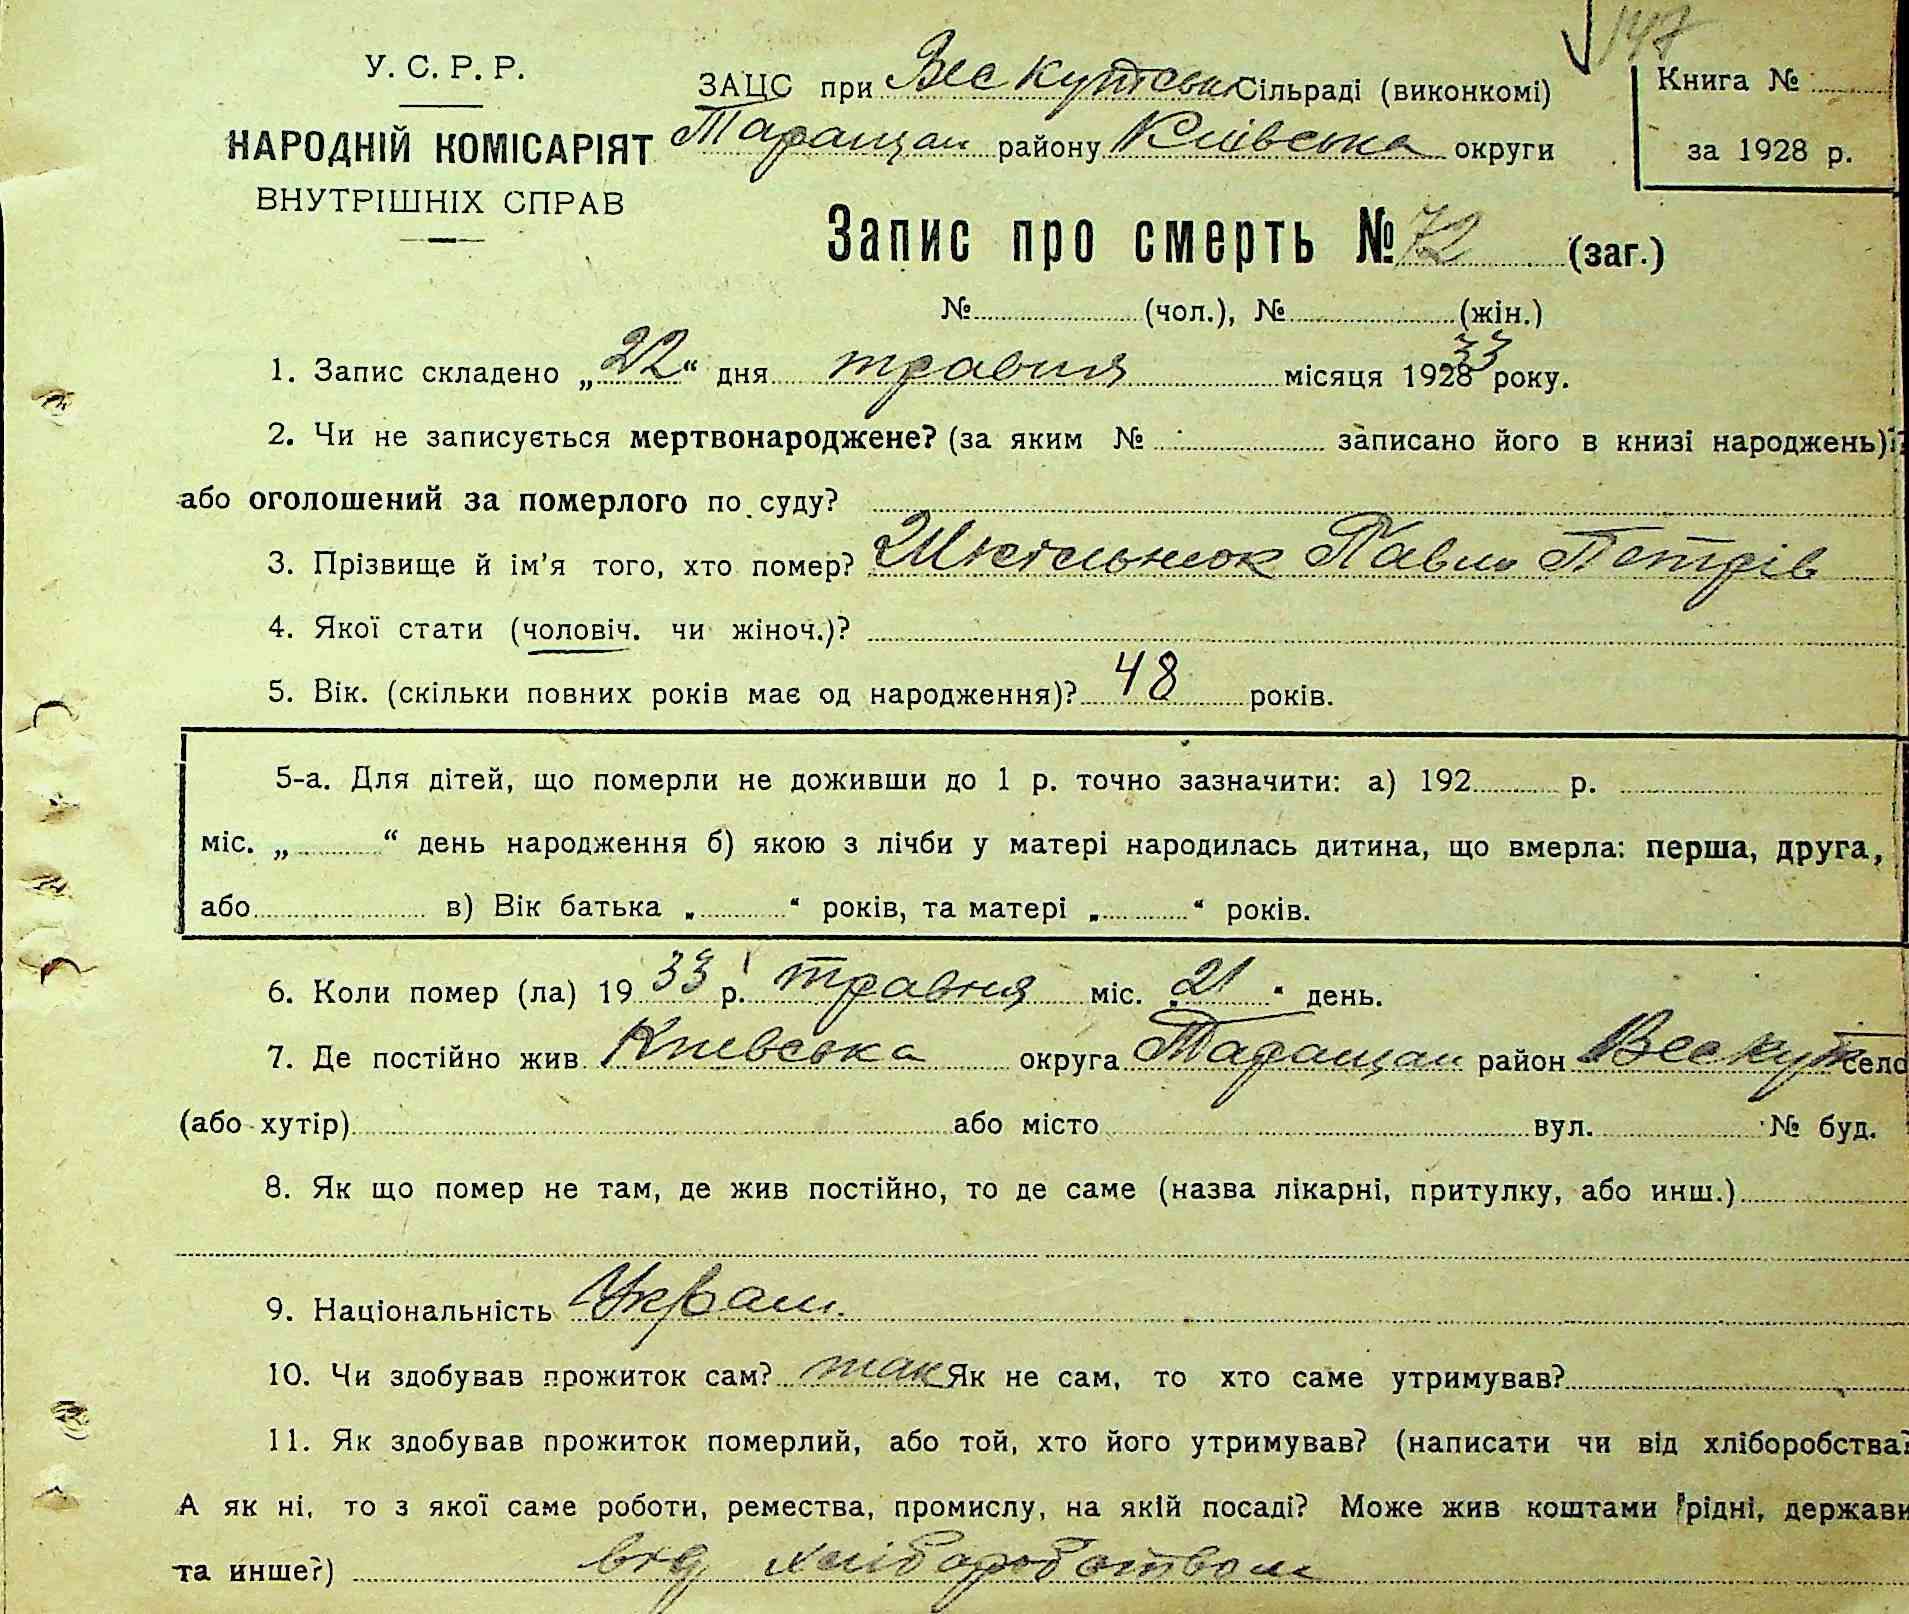 147
У. С. Р. Р.
НАРОДНІЙ КОМІСАРІЯТ
ВНУТРІШНІХ СПРАВ
ЗАЦС при Вес Кутськ Сільраді (виконкомі)
Таращан району Київська округи
Книга №
за 1928 р.
Запис про смерть № 72 (заг.)
№ (чол.), № (жін.)
1. Запис складено „22“ дня травня місяця 1928 33 року.
2. Чи не записується мертвонароджене? (за яким № записано його в книзі народжень)?
або оголошений за померлого по суду?
3. Прізвище й ім'я того, хто помер? Павло Петрів
4. Якої стати (чоловіч. чи жіноч.)?
5. Вік. (скільки повних років має од народження)? 48 років.
5-а. Для дітей, що померли не доживши до 1 р. точно зазначити: а) 192 р.
міс. „ “ день народження б) якою з лічби у матері народилась дитина, що вмерла: перша, друга,
або в) Вік батька „ “ років, та матері „ “ років.
6. Коли помер (ла) 1933 р. травня міс. „21“ день.
7. Де постійно жив Киевська округа Таращан район Вес Кут село
(або хутір) або місто вул. № буд.
8. Як що помер не там, де жив постійно, то де саме (назва лікарні, притулку, або инш.)
9. Національність Украін.
10. Чи здобував прожиток сам? так Як не сам, то хто саме утримував?
11. Як здобував прожиток померлий, або той, хто його утримував? (написати чи від хліборобства?
А як ні, то з якої саме роботи, ремества, промислу, на якій посаді? Може жив коштами рідні, держави
та инше?) від хліборобством